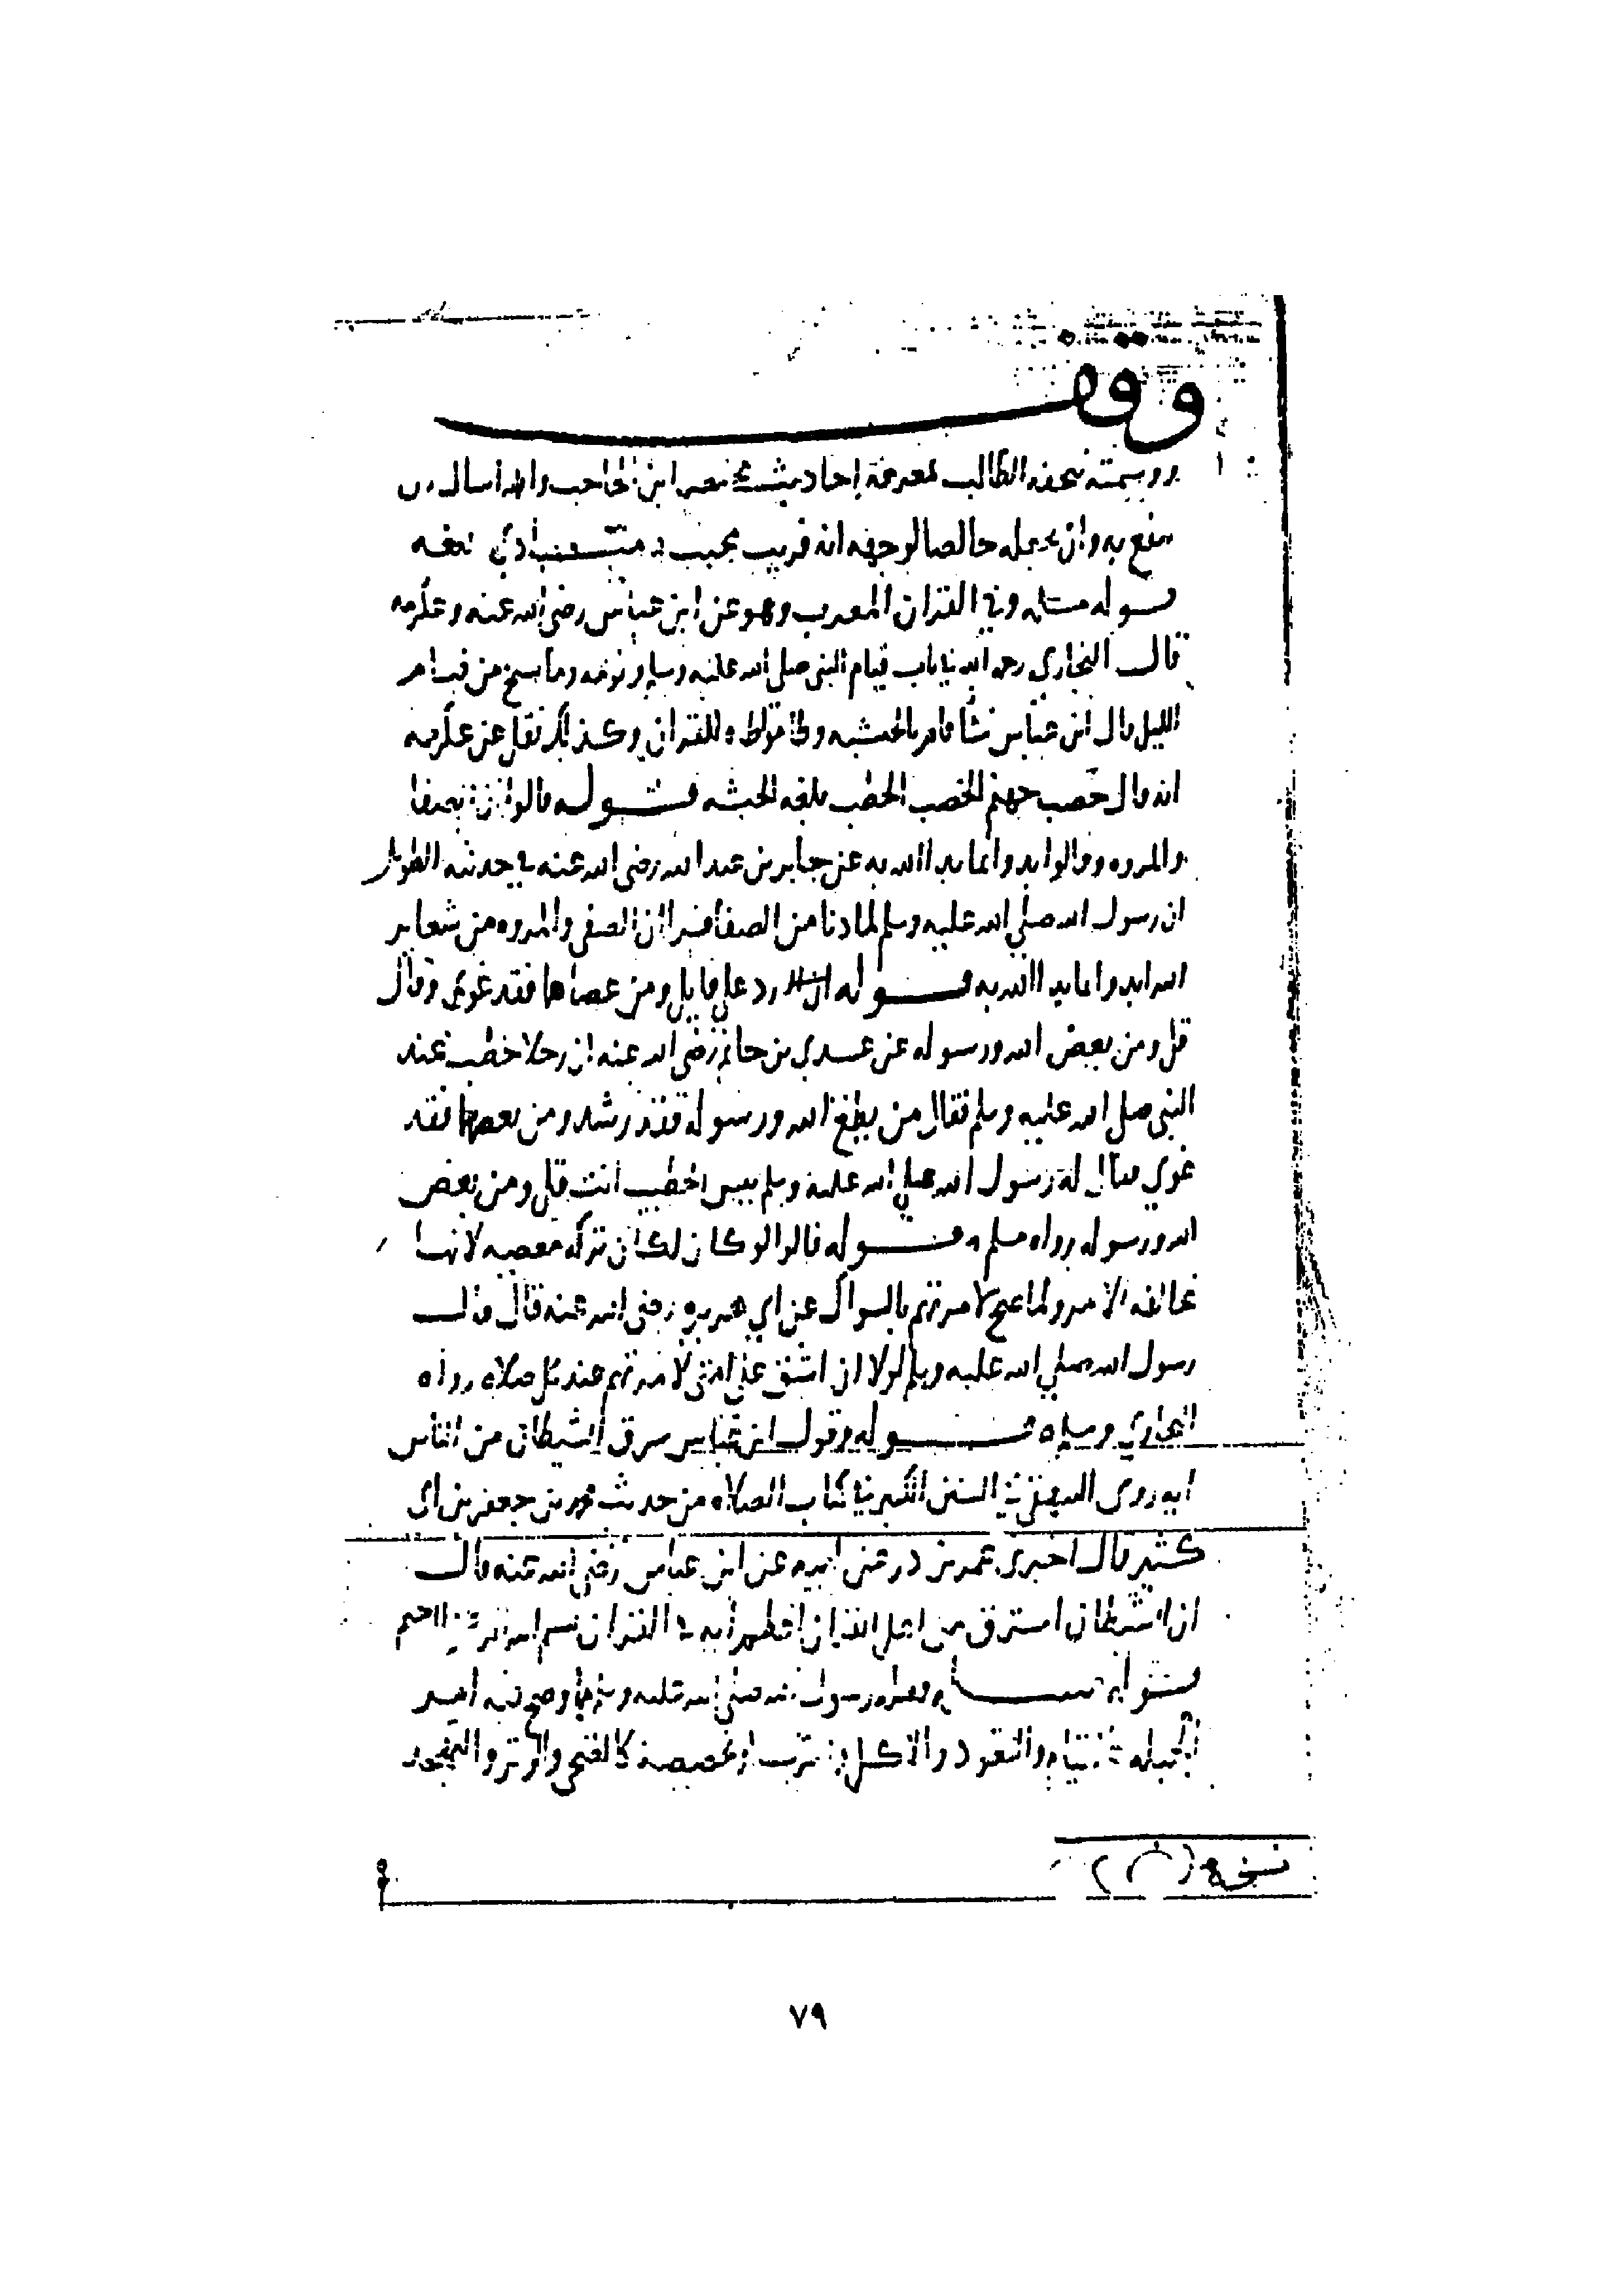 وقف
وسميته تحفة الطالب لمعرفة احاديث مختصر ابن الحاجب والله اسال ان
ينفع به وان يجعله خالصا لوجهه انه قريب مجيب
قوله مسئله وفي القران المعرب وهو عن ابن عباس رضي الله عنه وعكرمه
قال البخاري رحمه الله في باب قيام النبي صلى الله عليه وسلم ونومه وما نسخ من قيام
الليل قال ابن عباس نشا قام بالحبشيه وطا مواطاه للقران وكذلك نقل عن عكرمه
انه قال حصب جهنم الحصب الحطب بلغه الحبشه قوله قالوا
والمروه وقالوا ابدوا بما بدا الله به عن جابر بن عبد الله رضي الله عنه في حديثه الطويل
ان رسول الله صلي الله عليه وسلم لما دنا من الصفا قرا ان الصفى والمروه من شعاير
الله ابدوا بما بدا الله به قوله رد على قايل ومن عصاهما فقد غوى وقال
قل ومن يعص الله ورسوله عن عدي بن حاتم رضي الله عنه ان رجلا خطب عند
النبي صلى الله عليه وسلم فقال من يطع الله ورسوله فقد رشد ومن يعصهما فقد
غوي فقال له رسول الله صلي الله عليه وسلم بيس الخطيب انت قل ومن يعص
الله ورسوله رواه مسلم قوله قالوا لو كان لكان تركه معصيه لانها
مخالفه الامر ولما صح لامرتهم بالسواك عن ابي هريره رضي الله عنه قال قال
رسول الله صلي الله عليه وسلم لولا ان اشق على امتي لامرتهم عند كل صلاه رواه
البخاري ومسلم قوله وقول ابن عباس سرق الشيطان من الناس
ايه روى البيهقي في السنن الكبير في كتاب الصلاه من حديث محمد بن جعفر بن ابي
كثير قال اخبرني عمر بن ذر عن ابيه عن ابن عباس رضي الله عنه قال
ان الشيطان استرق من اهل القران اعظم ايه في القران بسم الله الرحمن الرحيم
رسول الله صلى الله عليه وسلم ما وضح فيه امر
الجبله كالقيام والقعود والاكل والشرب او تخصيصه كالضحى والوتر والتهجد
نسخة (س)
٧٩